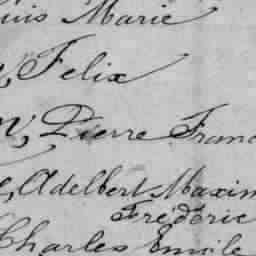 Marie
Felix
Pierre Franc
Adelbert Maxim
Frédéric
Charles Emile